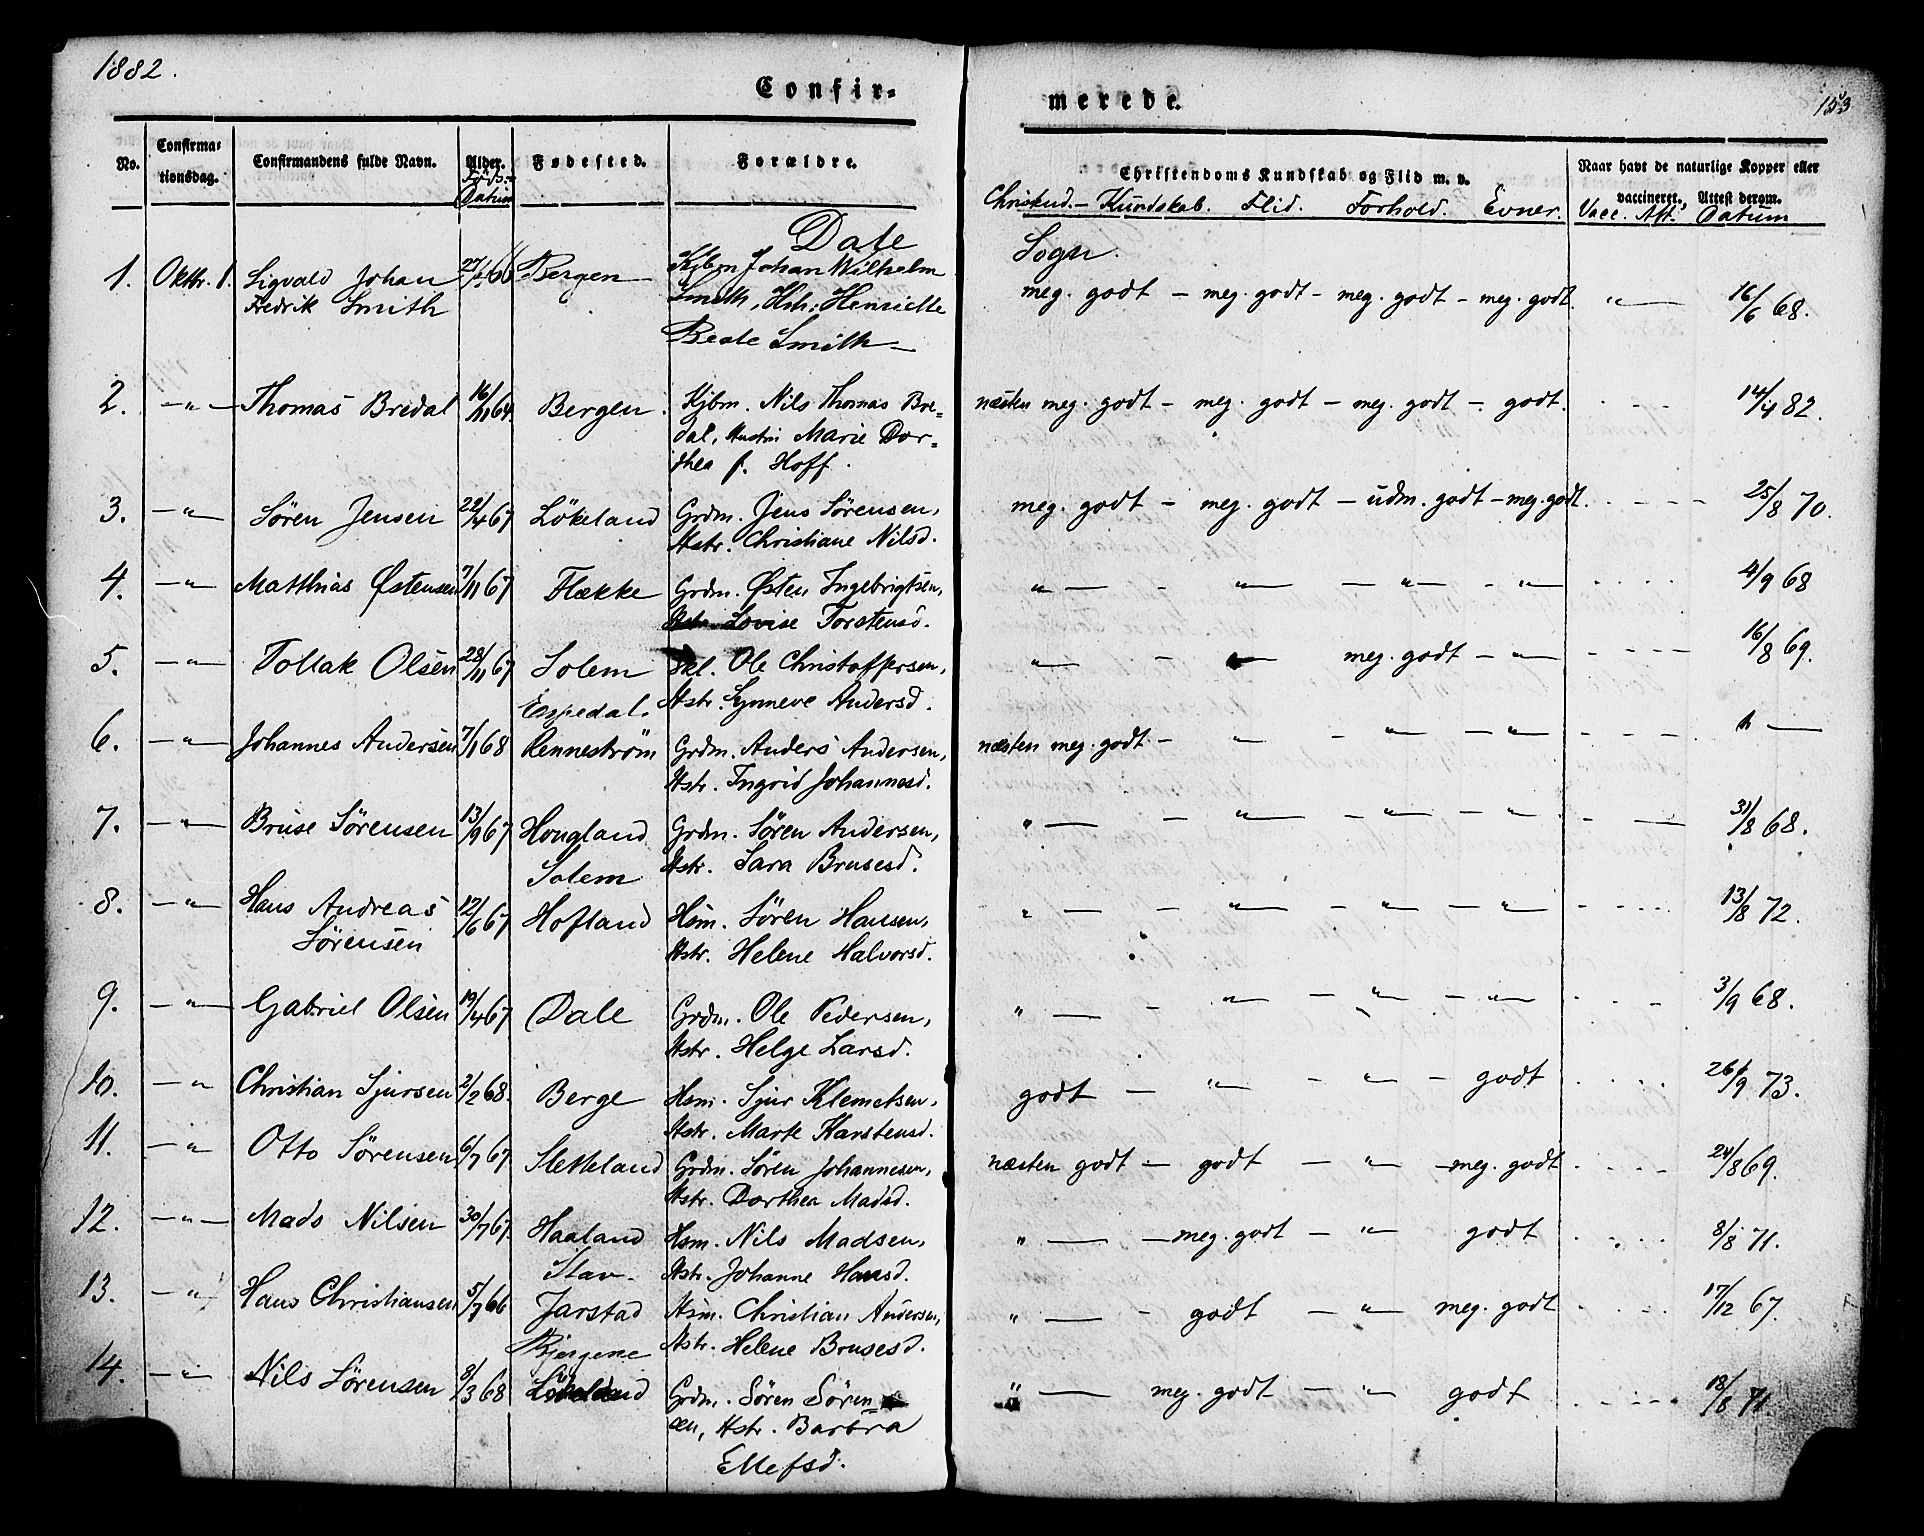 1882.
Confir=
merede.
153
No.
Confirma=
tionsdag.
Confirmandens fulde Navn.
Alder.
Føds.=
Datum
Fødested.
Forældre.
Christendoms Kundskab og Flid m. v.
Chriskud. - Kundskab. Flid. Forhold. Evner.
Naar havt de naturlige Kopper eller
vaccineret, Attest derom.
Vacc. Att. Datum
Dale Sogn.
1. Oktbr. 1. Sigvald Johan 27/ 66 Bergen Kjbm Johan Wilhelm
Fredrik Smith Smith, Hstr. Henriette
Beate Smith
meg. godt - meg. godt - meg. godt - meg. godt. " 16/6 68.
2. -"- Thomas Bredal 16/11 64. Bergen. Kjbm. Nils Thomas Bre=
dal, Hustru Marie Dor=
thea f. Hoff.
næsten meg. godt - meg. godt - meg. godt - godt. 14/4 82.
3. -"- Sören Jensen 22/4 67 Lökeland Grdm. Jens Sörensen,
Hstr. Christiane Nilsd.
meg. godt - meg. godt - udm. godt - meg. godt. 25/8 70.
4. -"- Matthias Østensen 7/11 67 Flekke Grdm. Østen Ingebrigtsen,
Hstr. Lovise Torstensd.
" - " - " - " 4/9 68
5. -"- Tollak Olsen 28/11 67 Solem Skl. Ole Christoffersen,
Hstr. Synneve Andersd.
" - " meg. godt - " 16/8 69.
Espedal.
6. -"- Johannes Andersen 7/1 68 Renneström Grdm. Anders Andersen,
Hstr. Ingrid Johannesd.
næsten meg. godt - " - " - " "
7. -"- Bruse Sörensen 13/9 67 Hougland Grdm. Sören Andersen,
Hstr. Sara Brusesd.
" - " - " - " 31/8 68.
Solem
8. -"- Hans Andreas 12/6 67 Hofland Hsm. Sören Hansen,
Sörensen Hstr. Helene Halvorsd.
" - " - " - " 13/8 72.
9. -"- Gabriel Olsen 19/4 67 Dale Grdm. Ole Pedersen,
Hstr. Helge Larsd.
" - " - " - " 3/9 68.
10. -"- Christian Sjursen 2/2 68. Berge Hsm. Sjur Klemetsen,
Hstr. Marte Karstensd.
godt - " - " - godt 26/9 73.
11. -"- Otto Sörensen 6/7 67 Sletteland Grdm. Sören Johannesen,
Hstr. Dorthea Madsd.
næsten godt - godt - " - meg. godt 24/8 69.
12. -"- Mads Nilsen 30/7 67. Haaland Hsm. Nils Madsen,
Hstr. Johanne Hansd.
" - meg. godt - " godt 8/8 71.
Stav.
13. -"- Hans Christiansen 5/7 66 Jarstad Hsm. Christian Andersen,
Hstr. Helene Brusesd.
" - godt - " meg. godt 17/12 67.
Bjergene
14. -"- Nils Sörensen 8/3 68 Lökeland Grdm. Sören Sören
sen, Hstr. Barbra
Ellefsd.
" meg. godt - " godt 18/8 71.